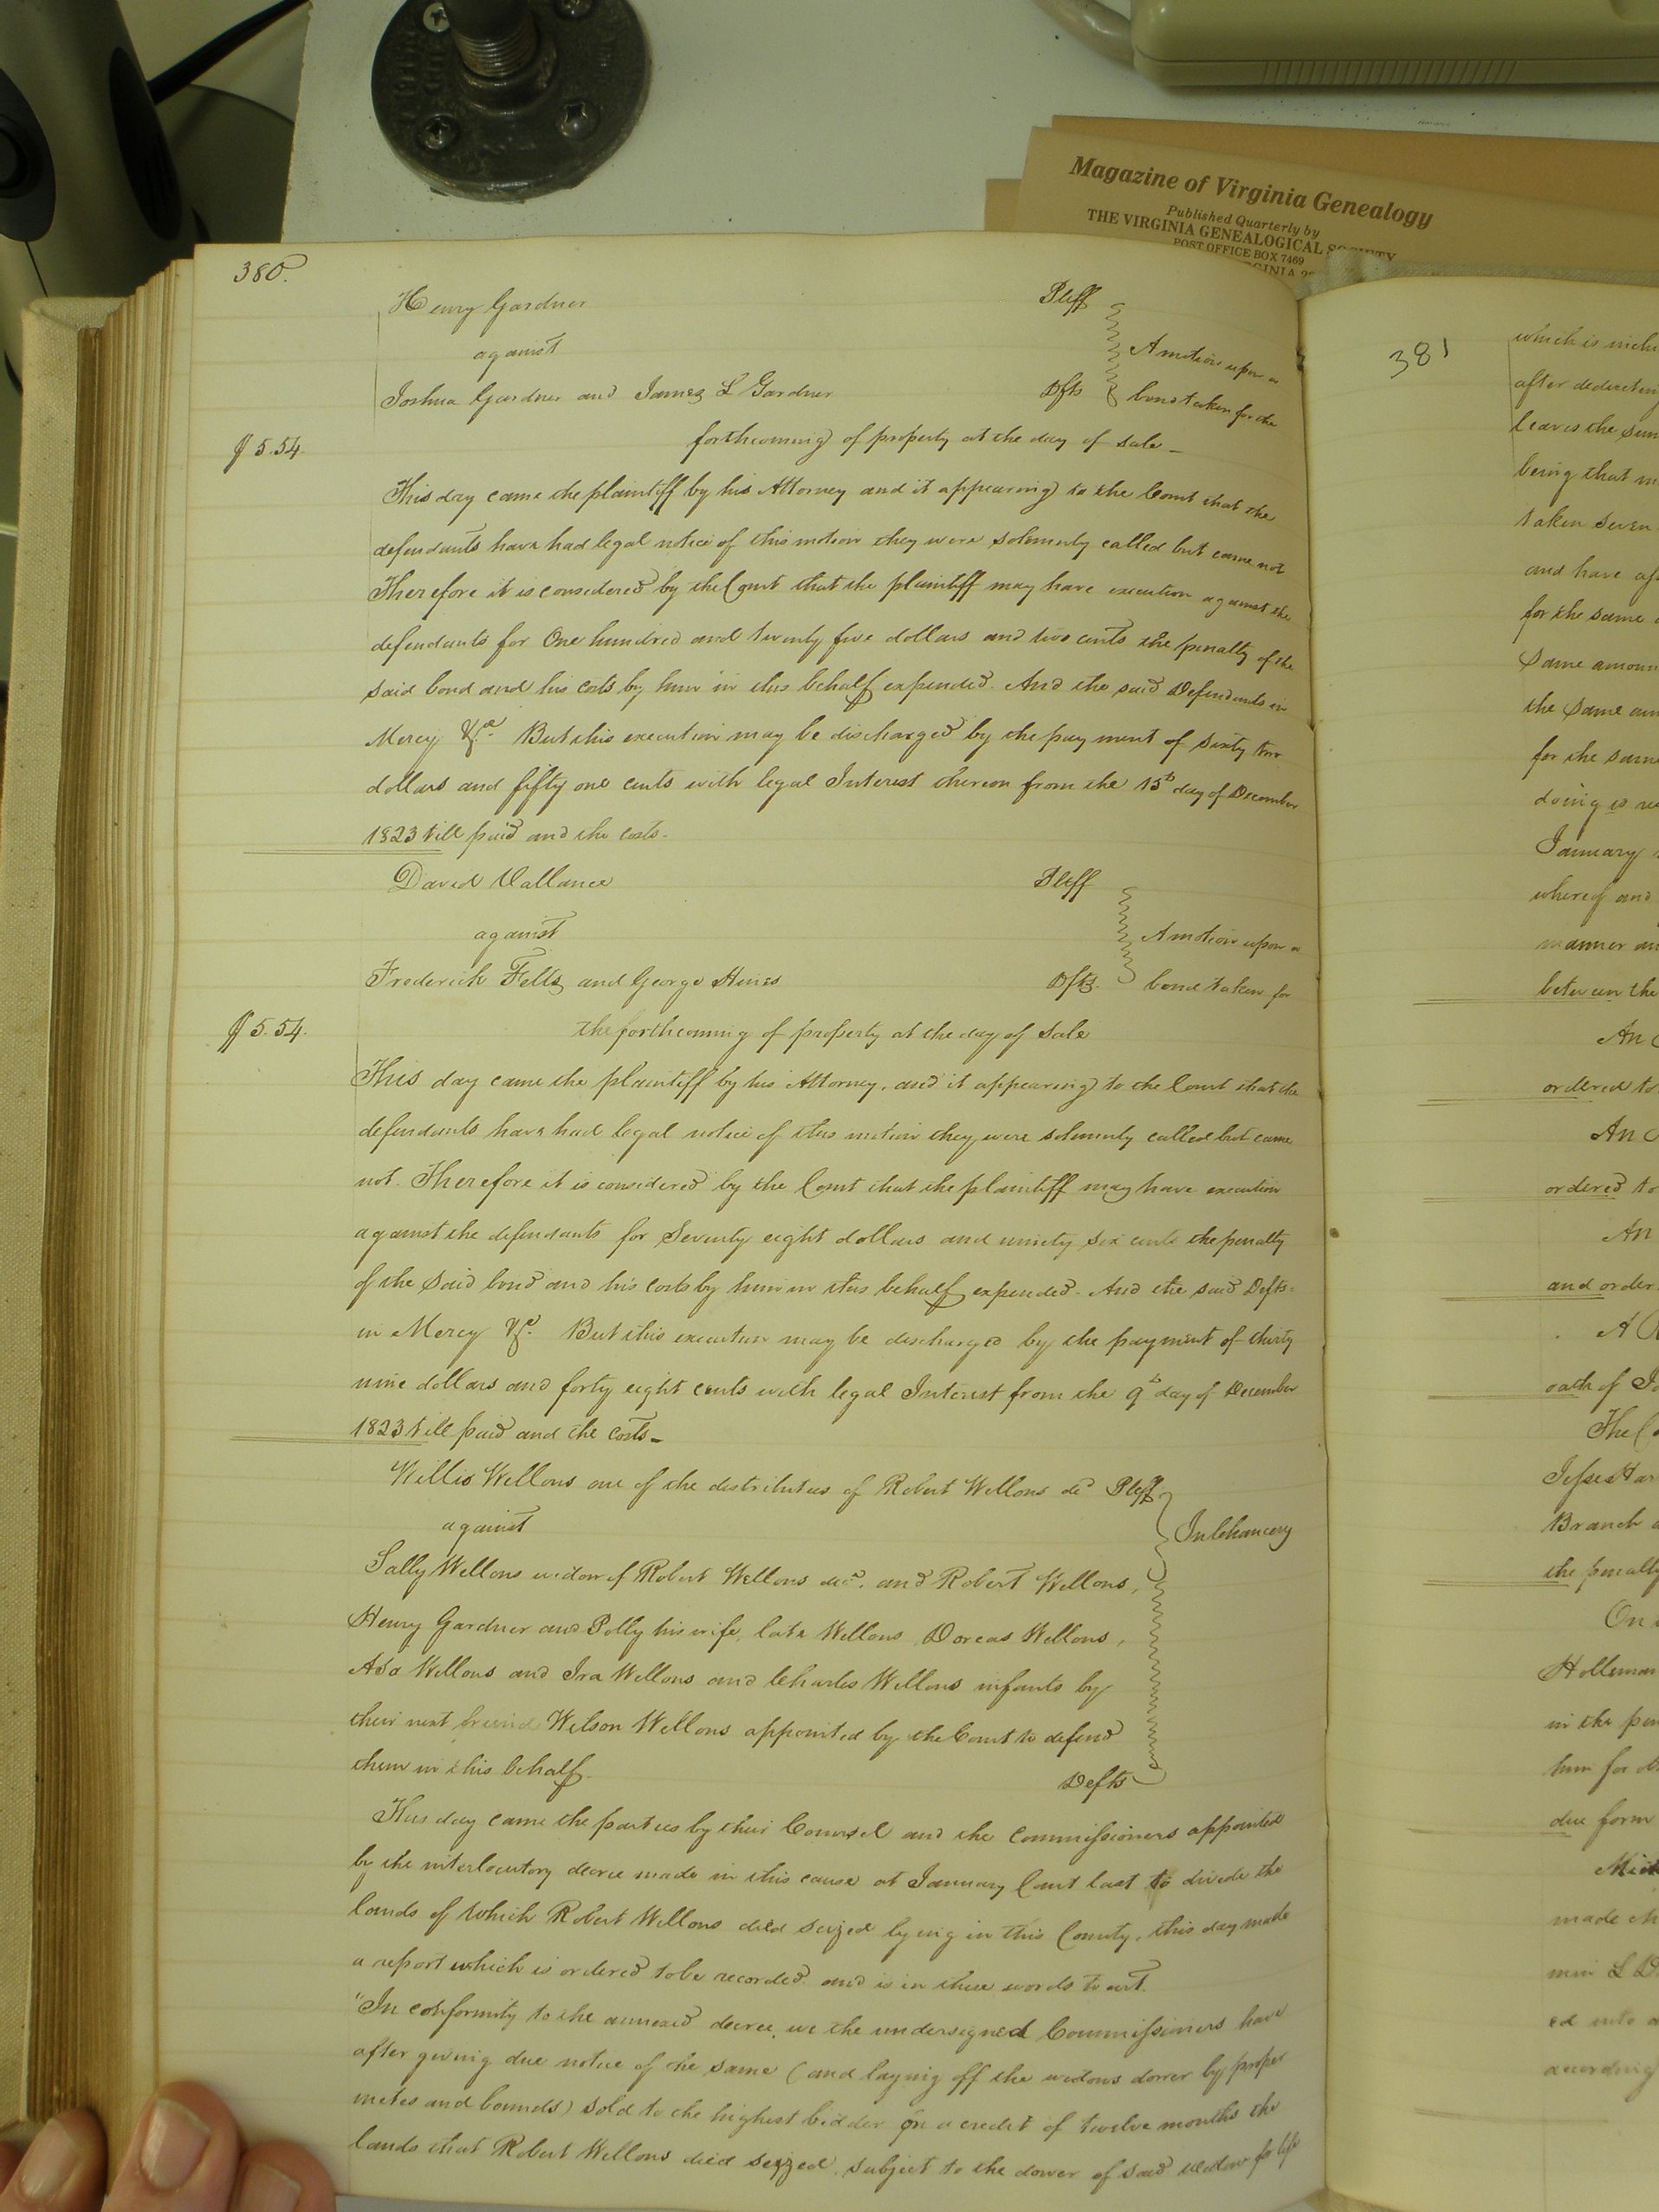 Magazine of Virginia Genealogy
Published Quarterly by
THE VIRGINIA GENEALOGICAL SOCIETY
POST OFFICE BOX 7469
380.
Henry Gardner Pltff
against A motion upon a
Joshua Gardner and James L Gardner Dfts bond taken for the
$5.54 forthcoming of property at the day of sale
This day came the plaintiff by his Attorney and it appearing to the Court that the
defendants have had legal notice of this motion they were solemnly called but came not
Therefore it is considered by the Court that the plaintiff may have execution against the
defendants for One hundred and twenty five dollars and two cents the penalty of the
said bond and his costs by him in this behalf expended. And the said Defendants in
Mercy &c. But this execution may be discharged by the payment of sixty two
dollars and fifty one cents with legal Interest thereon from the 15th day of December
1823 till paid and the costs.
David Vallance Pltff
against A motion upon a
Frederick Fells and George Hines Dfts. bond taken for
$5.54. the forthcoming of property at the day of sale
This day came the plaintiff by his Attorney, and it appearing to the Court that the
defendants have had legal notice of this motion they were solemnly called but came
not. Therefore it is considered by the Court that the plaintiff may have execution
against the defendants for Seventy eight dollars and ninety six cents the penalty
of the said bond and his costs by him in this behalf expended. And the said Defts.
in Mercy &c. But this execution may be discharged by the payment of thirty
nine dollars and forty eight cents with legal Interest from the 9th day of December
1823 till paid and the costs
Willis Wellons one of the distributees of Robert Wellons decd Pltff
against In Chancery
Sally Wellons widow of Robert Wellons decd. and Robert Wellons,
Henry Gardner and Polly his wife, late Wellons, Dorcas Wellons,
Asa Wellons and Ira Wellons and Charles Wellons infants by
their next friend Wilson Wellons appointed by the Court to defend
them in this behalf. Defts
This day came the parties by their Counsel and the Commissioners appointed
by the interlocutory decree made in this cause at January Court last to divide the
lands of which Robert Wellons died seized lying in this County, this day made
a report which is ordered to be recorded and is in these words to wit.
"In conformity to the annexed decree, we the undersigned Commissioners have
after giving due notice of the same (and laying off the widows dower by proper
metes and bounds) sold to the highest bidder on a credit of twelve months the
lands that Robert Wellons died seized, subject to the dower of said widow for life
381
which is
after
leaves the
being that
taken seven
and have
for the same
same
the same
for the same
doing is
January
whereof and
manner
between the
An
ordered to
An
ordered to
An
and order
A
oath of
The
Jesse
Branch
the penalty
On
Holleman
in the
him for
due form
made